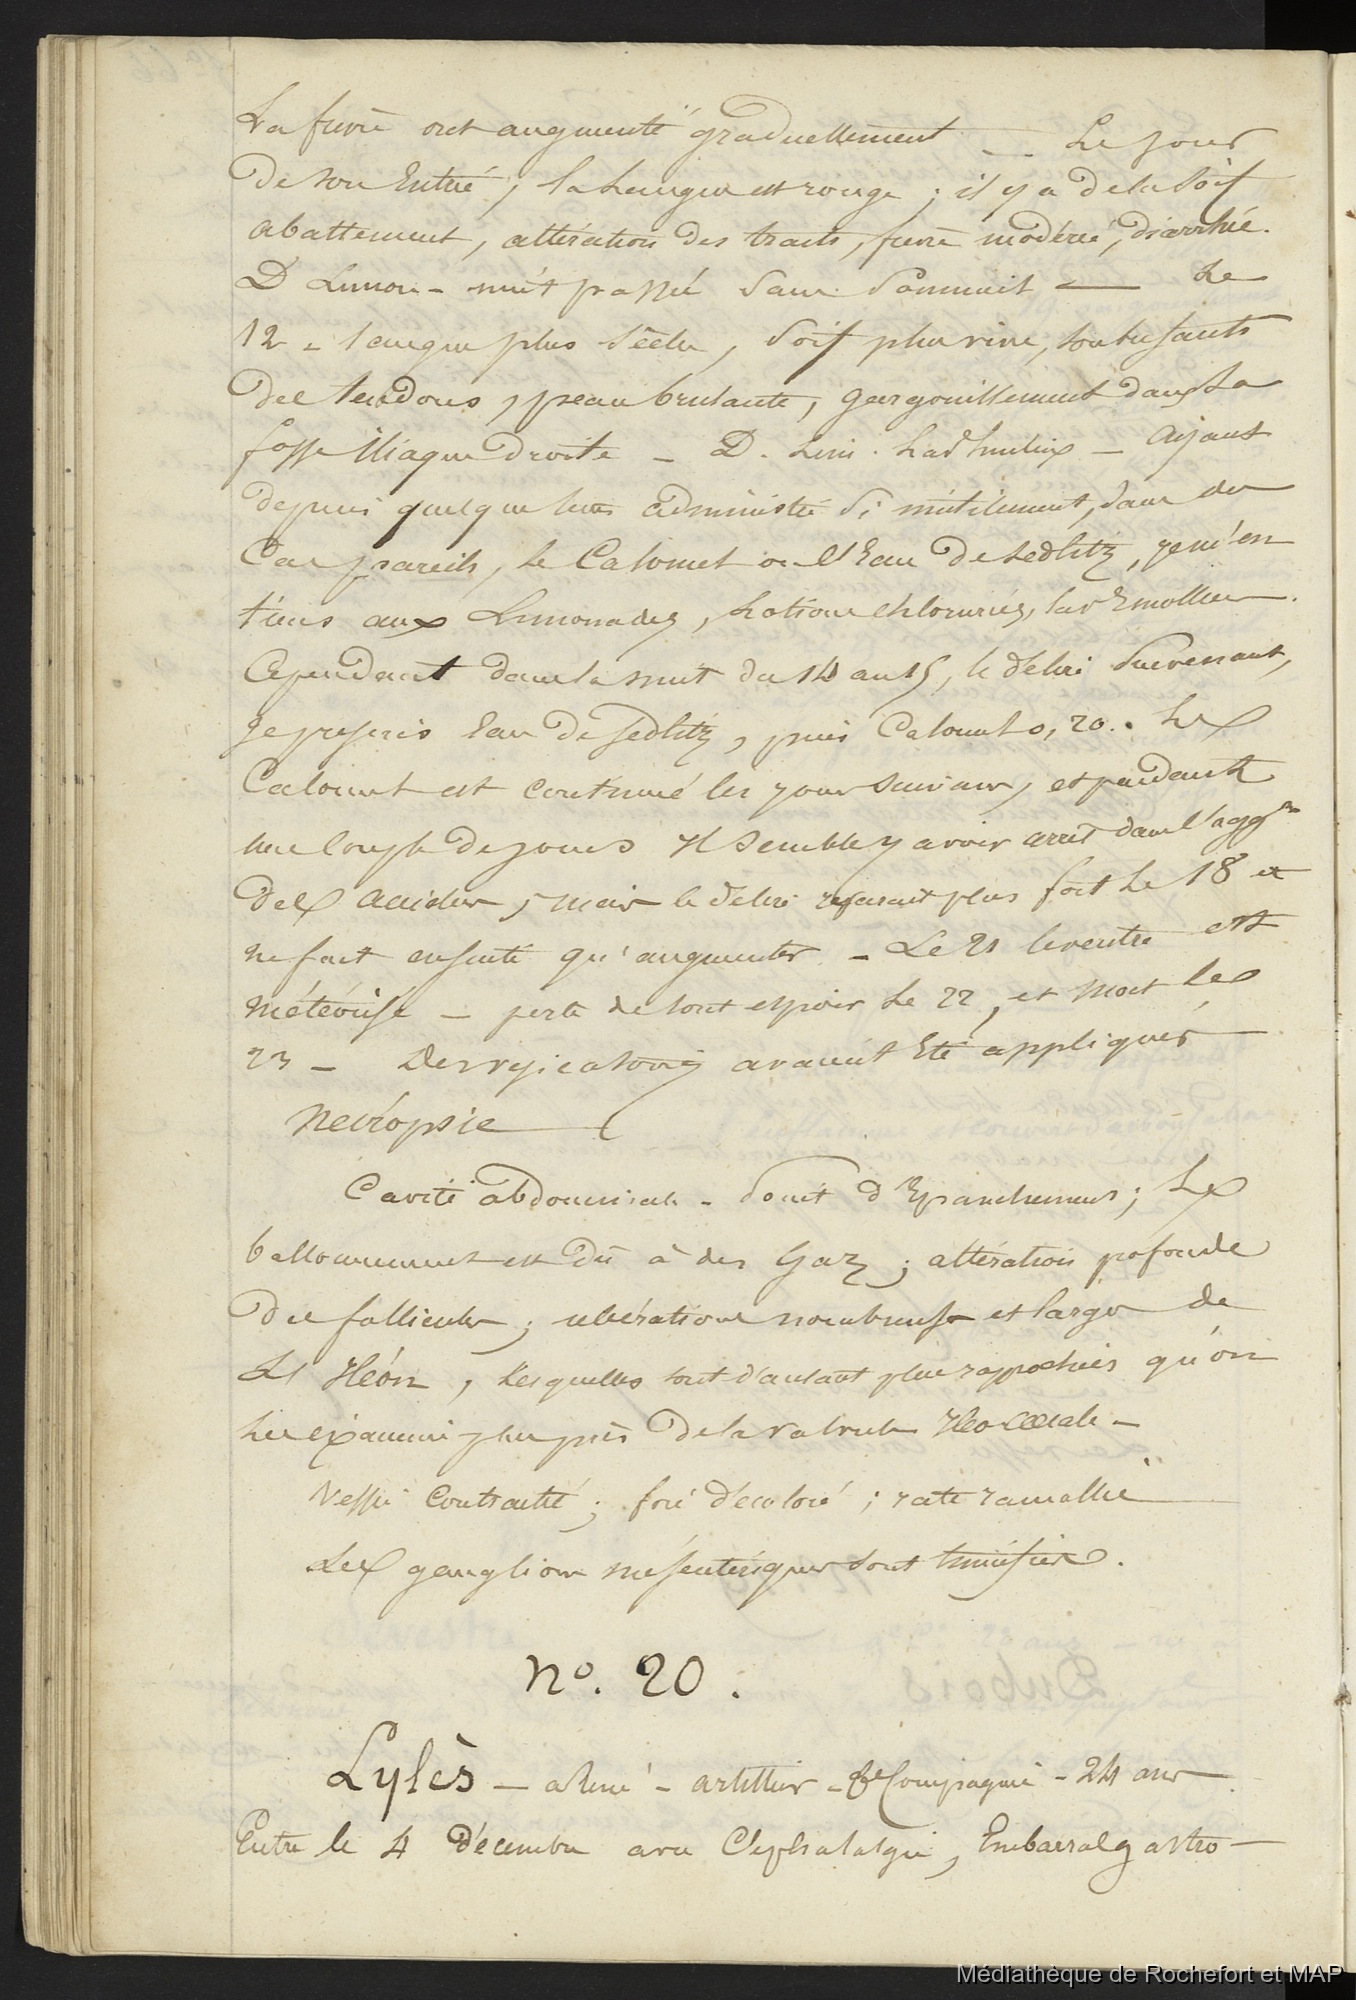 La fievre ont augmenté graduellement — Le jour
de son Entrée, la Langue est rouge ; il y a de la soif
abattement, altération des traits, fievre modérée, diarrhée.
D Limon - nuit passée sans sommeil — Le
12 - langue plus sèche, soif plus vive, soubresauts
des tendons, peau brulante, gargouillement dans la
fosse Iliaque droite - D. Lim. - Ayant
depuis quelque tems administré si inutilement, dans des
Cas pareils, le Calomel ou l'Eau de Sedlitz, je m'en
tiens aux Limonades, Potions chlorurées, lavt Emollien.
Cependant dans la nuit du 14 au 15, le délire survenant,
Je prescris Eau de Sedlitz, puis Calomel 0,20. Le
Calomel est continué les jours suivans, et pendant
une couple de jours Il semble y avoir arrêt dans l'aggon
des accidens, mais le délire reparait plus fort le 18 et
ne fait ensuite qu'augmenter - Le 21 le ventre est
météorisé - perte de tout espoir le 22, et mort le
23 - Des vésicatoires avaient Eté appliqués
Nécropsie
Cavité abdominale - point d'Epanchemens ; Le
ballonnement est dû à des Gaz ; altération profonde
des follicules ; ulcérations nombreuses et larges de
L'Iléon, lesquelles sont d'autant plus rapprochées qu'on
les examine plus près de la valvule Iléo-cœcale -
Vessie contractée ; foie décoloré ; rate ramollie
Les ganglions mésentériques sont tuméfiés.
No. 20.
Lylès - - artilleur - Compagnie - 24 ans
Entre le 4 décembre avec Céphalalgie, Embarras gastro-
Médiathèque de Rochefort et MAP